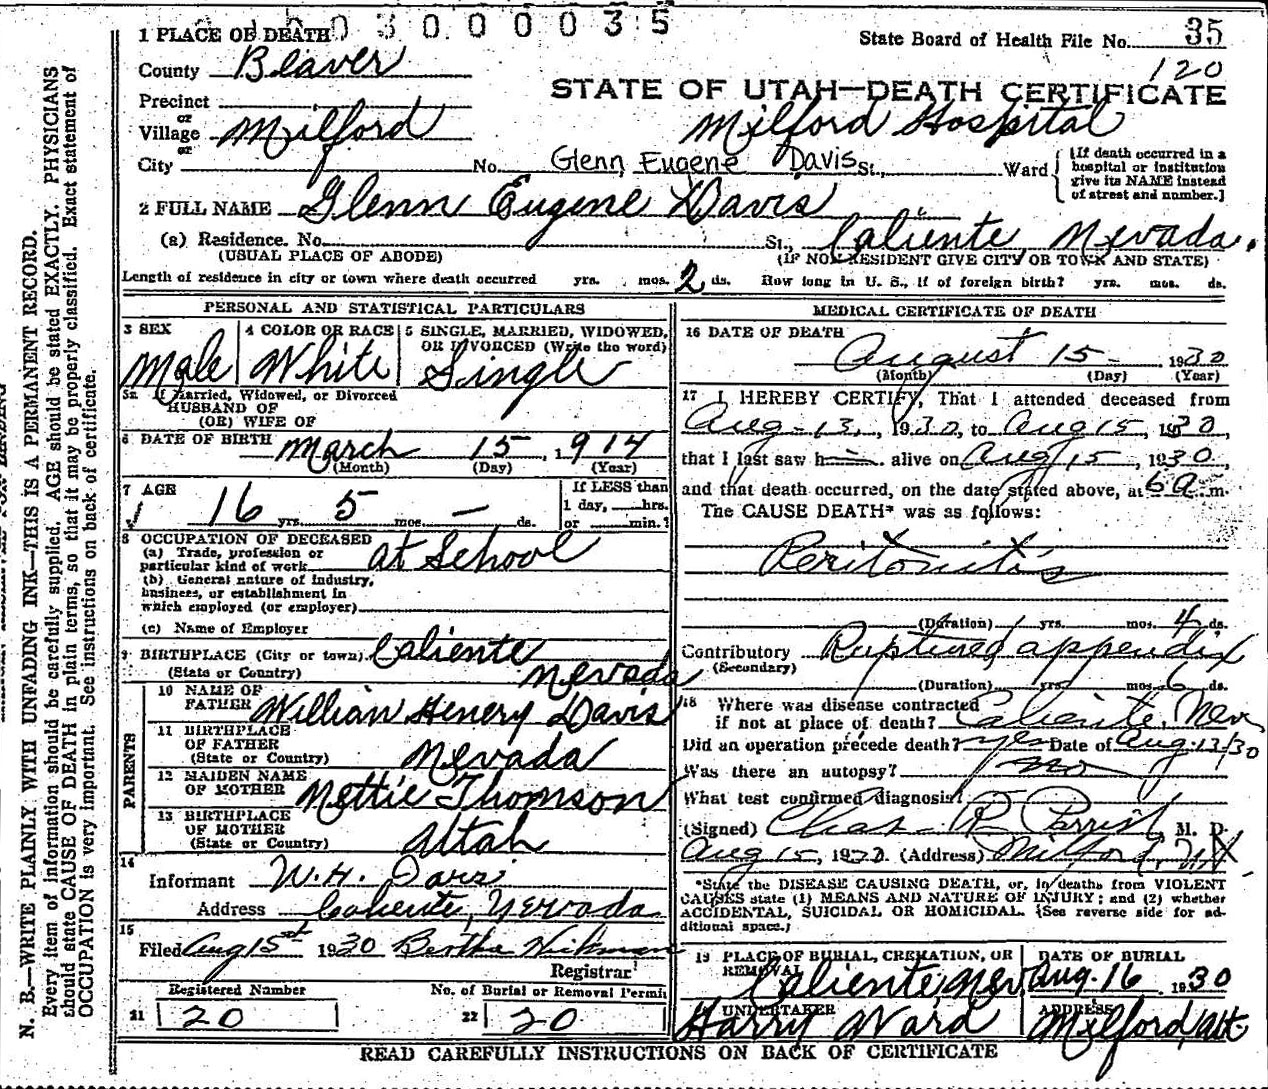 0 0 3 0 0 0 0 3 5
1 PLACE OF DEATH
State Board of Health File No. 35
County Beaver
120
STATE OF UTAH—DEATH CERTIFICATE
Precinct
or
Village Milford
Milford Hospital
or
City No. Glenn Eugene Davis St., Ward
[If death occurred in a hospital or institution give its NAME instead of street and number.]
2 FULL NAME Glenn Eugene Davis
(a) Residence. No. St., Caliente, Nevada.
(USUAL PLACE OF ABODE) (IF NON-RESIDENT GIVE CITY OR TOWN AND STATE)
Length of residence in city or town where death occurred yrs. mos. 2 ds. How long in U. S., if of foreign birth? yrs. mos. ds.
PERSONAL AND STATISTICAL PARTICULARS
3 SEX Male
4 COLOR OR RACE White
5 SINGLE, MARRIED, WIDOWED, OR DIVORCED (Write the word) Single
5a If Married, Widowed, or Divorced
HUSBAND OF
(OR) WIFE OF
6 DATE OF BIRTH March 15, 1914
(Month) (Day) (Year)
7 AGE 16 yrs. 5 mos. — ds.
If LESS than
1 day, hrs.
or min.?
8 OCCUPATION OF DECEASED
(a) Trade, profession or
particular kind of work at School
(b) General nature of Industry,
business, or establishment in
which employed (or employer)
(c) Name of Employer
9 BIRTHPLACE (City or town) Caliente
(State or Country) Nevada
PARENTS
10 NAME OF FATHER Willian Henery Davis
11 BIRTHPLACE OF FATHER
(State or Country) Nevada
12 MAIDEN NAME OF MOTHER Nettie Thomson
13 BIRTHPLACE OF MOTHER
(State or Country) Utah
14
Informant W. H. Davis
Address Caliente, Nevada
15
Filed Aug 15st 1930 Bertha Wickman
Registrar
Registered Number
21 20
No. of Burial or Removal Permit
22 20
MEDICAL CERTIFICATE OF DEATH
16 DATE OF DEATH
August 15 1930
(Month) (Day) (Year)
17 I HEREBY CERTIFY, That I attended deceased from
Aug - 13, 1930, to Aug 15, 1930,
that I last saw h alive on Aug 15, 1930,
and that death occurred, on the date stated above, at 6 a. m.
The CAUSE DEATH* was as follows:
Peritonitis
(Duration) yrs. mos. 4 ds.
Contributory Ruptured appendix
(Secondary)
(Duration) yrs. mos. 6 ds.
18 Where was disease contracted
if not at place of death? Caliente, Nev
Did an operation precede death? yes Date of Aug. 13/30
Was there an autopsy? no
What test confirmed diagnosis?
(Signed) Chas. R. Parrish, M. D.
Aug 15, 1930. (Address) Milford, Ut
*State the DISEASE CAUSING DEATH, or, in deaths from VIOLENT
CAUSES state (1) MEANS AND NATURE OF INJURY; and (2) whether
ACCIDENTAL, SUICIDAL OR HOMICIDAL. (See reverse side for additional space.)
19 PLACE OF BURIAL, CREMATION, OR REMOVAL
Caliente, Nev
DATE OF BURIAL
Aug. 16, 1930
UNDERTAKER
Harry Ward
ADDRESS
Milford, Ut.
READ CAREFULLY INSTRUCTIONS ON BACK OF CERTIFICATE
N. B.—WRITE PLAINLY WITH UNFADING INK—THIS IS A PERMANENT RECORD.
Every item of information should be carefully supplied. AGE should be stated EXACTLY. PHYSICIANS
should state CAUSE OF DEATH in plain terms, so that it may be properly classified. Exact statement of
OCCUPATION is very important. See instructions on back of certificate.